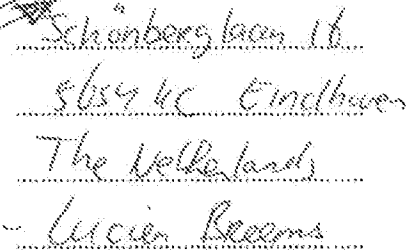 Schönberglaan 18
5654 HC Eindhoven
The Netherlands
Lucien Breems